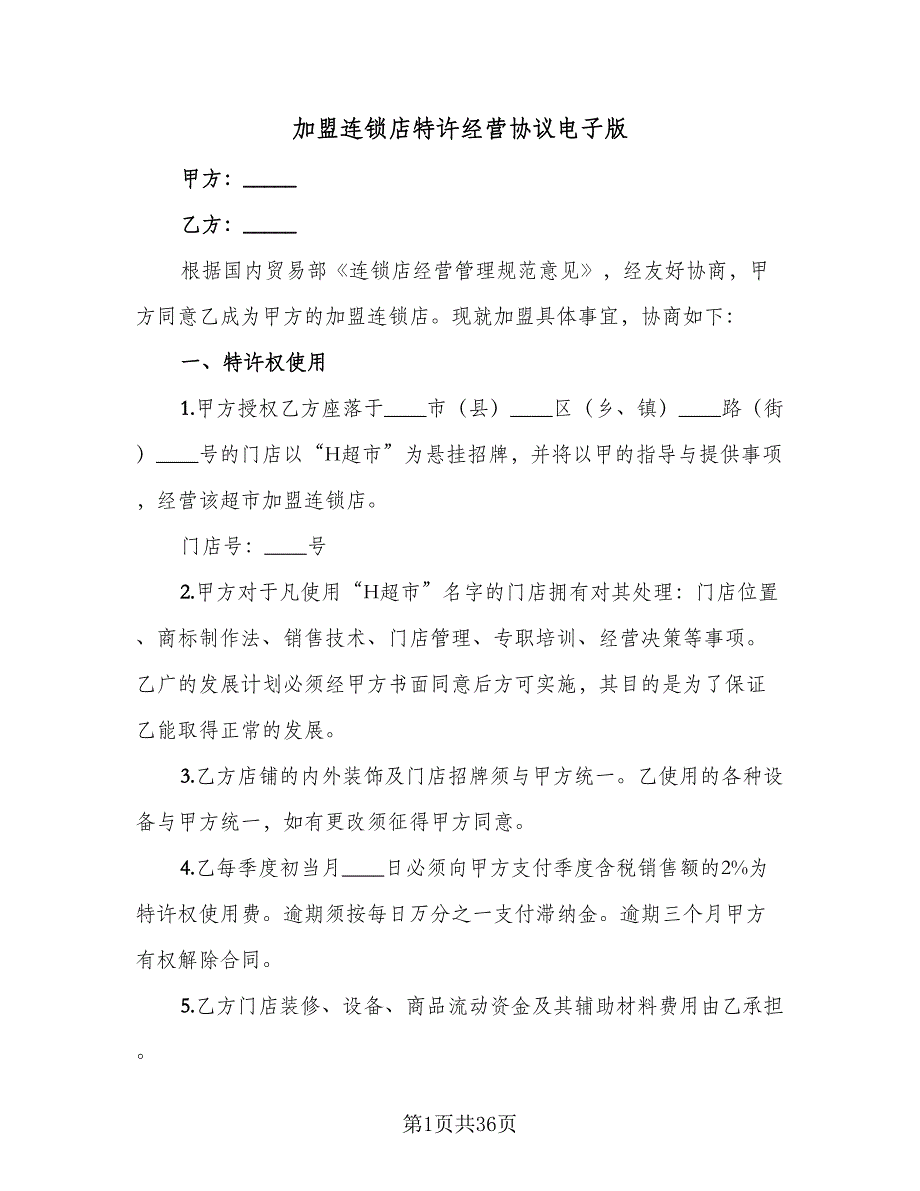 加盟连锁店特许经营协议电子版
甲方：_____
乙方：_____
根据国内贸易部《连锁店经营管理规范意见》，经友好协商，甲
方同意乙成为甲方的加盟连锁店。现就加盟具体事宜，协商如下：
一、特许权使用
1.甲方授权乙方座落于____市（县）____区（乡、镇）____路（街
）____号的门店以“H超市”为悬挂招牌，并将以甲的指导与提供事项
，经营该超市加盟连锁店。
门店号：____号
2.甲方对于凡使用“H超市”名字的门店拥有对其处理：门店位置
、商标制作法、销售技术、门店管理、专职培训、经营决策等事项。
乙广的发展计划必须经甲方书面同意后方可实施，其目的是为了保证
乙能取得正常的发展。
3.乙方店铺的内外装饰及门店招牌须与甲方统一。乙使用的各种设
备与甲方统一，如有更改须征得甲方同意。
4.乙每季度初当月____日必须向甲方支付季度含税销售额的2%为
特许权使用费。逾期须按每日万分之一支付滞纳金。逾期三个月甲方
有权解除合同。
5.乙方门店装修、设备、商品流动资金及其辅助材料费用由乙承担
。
第1页共36页